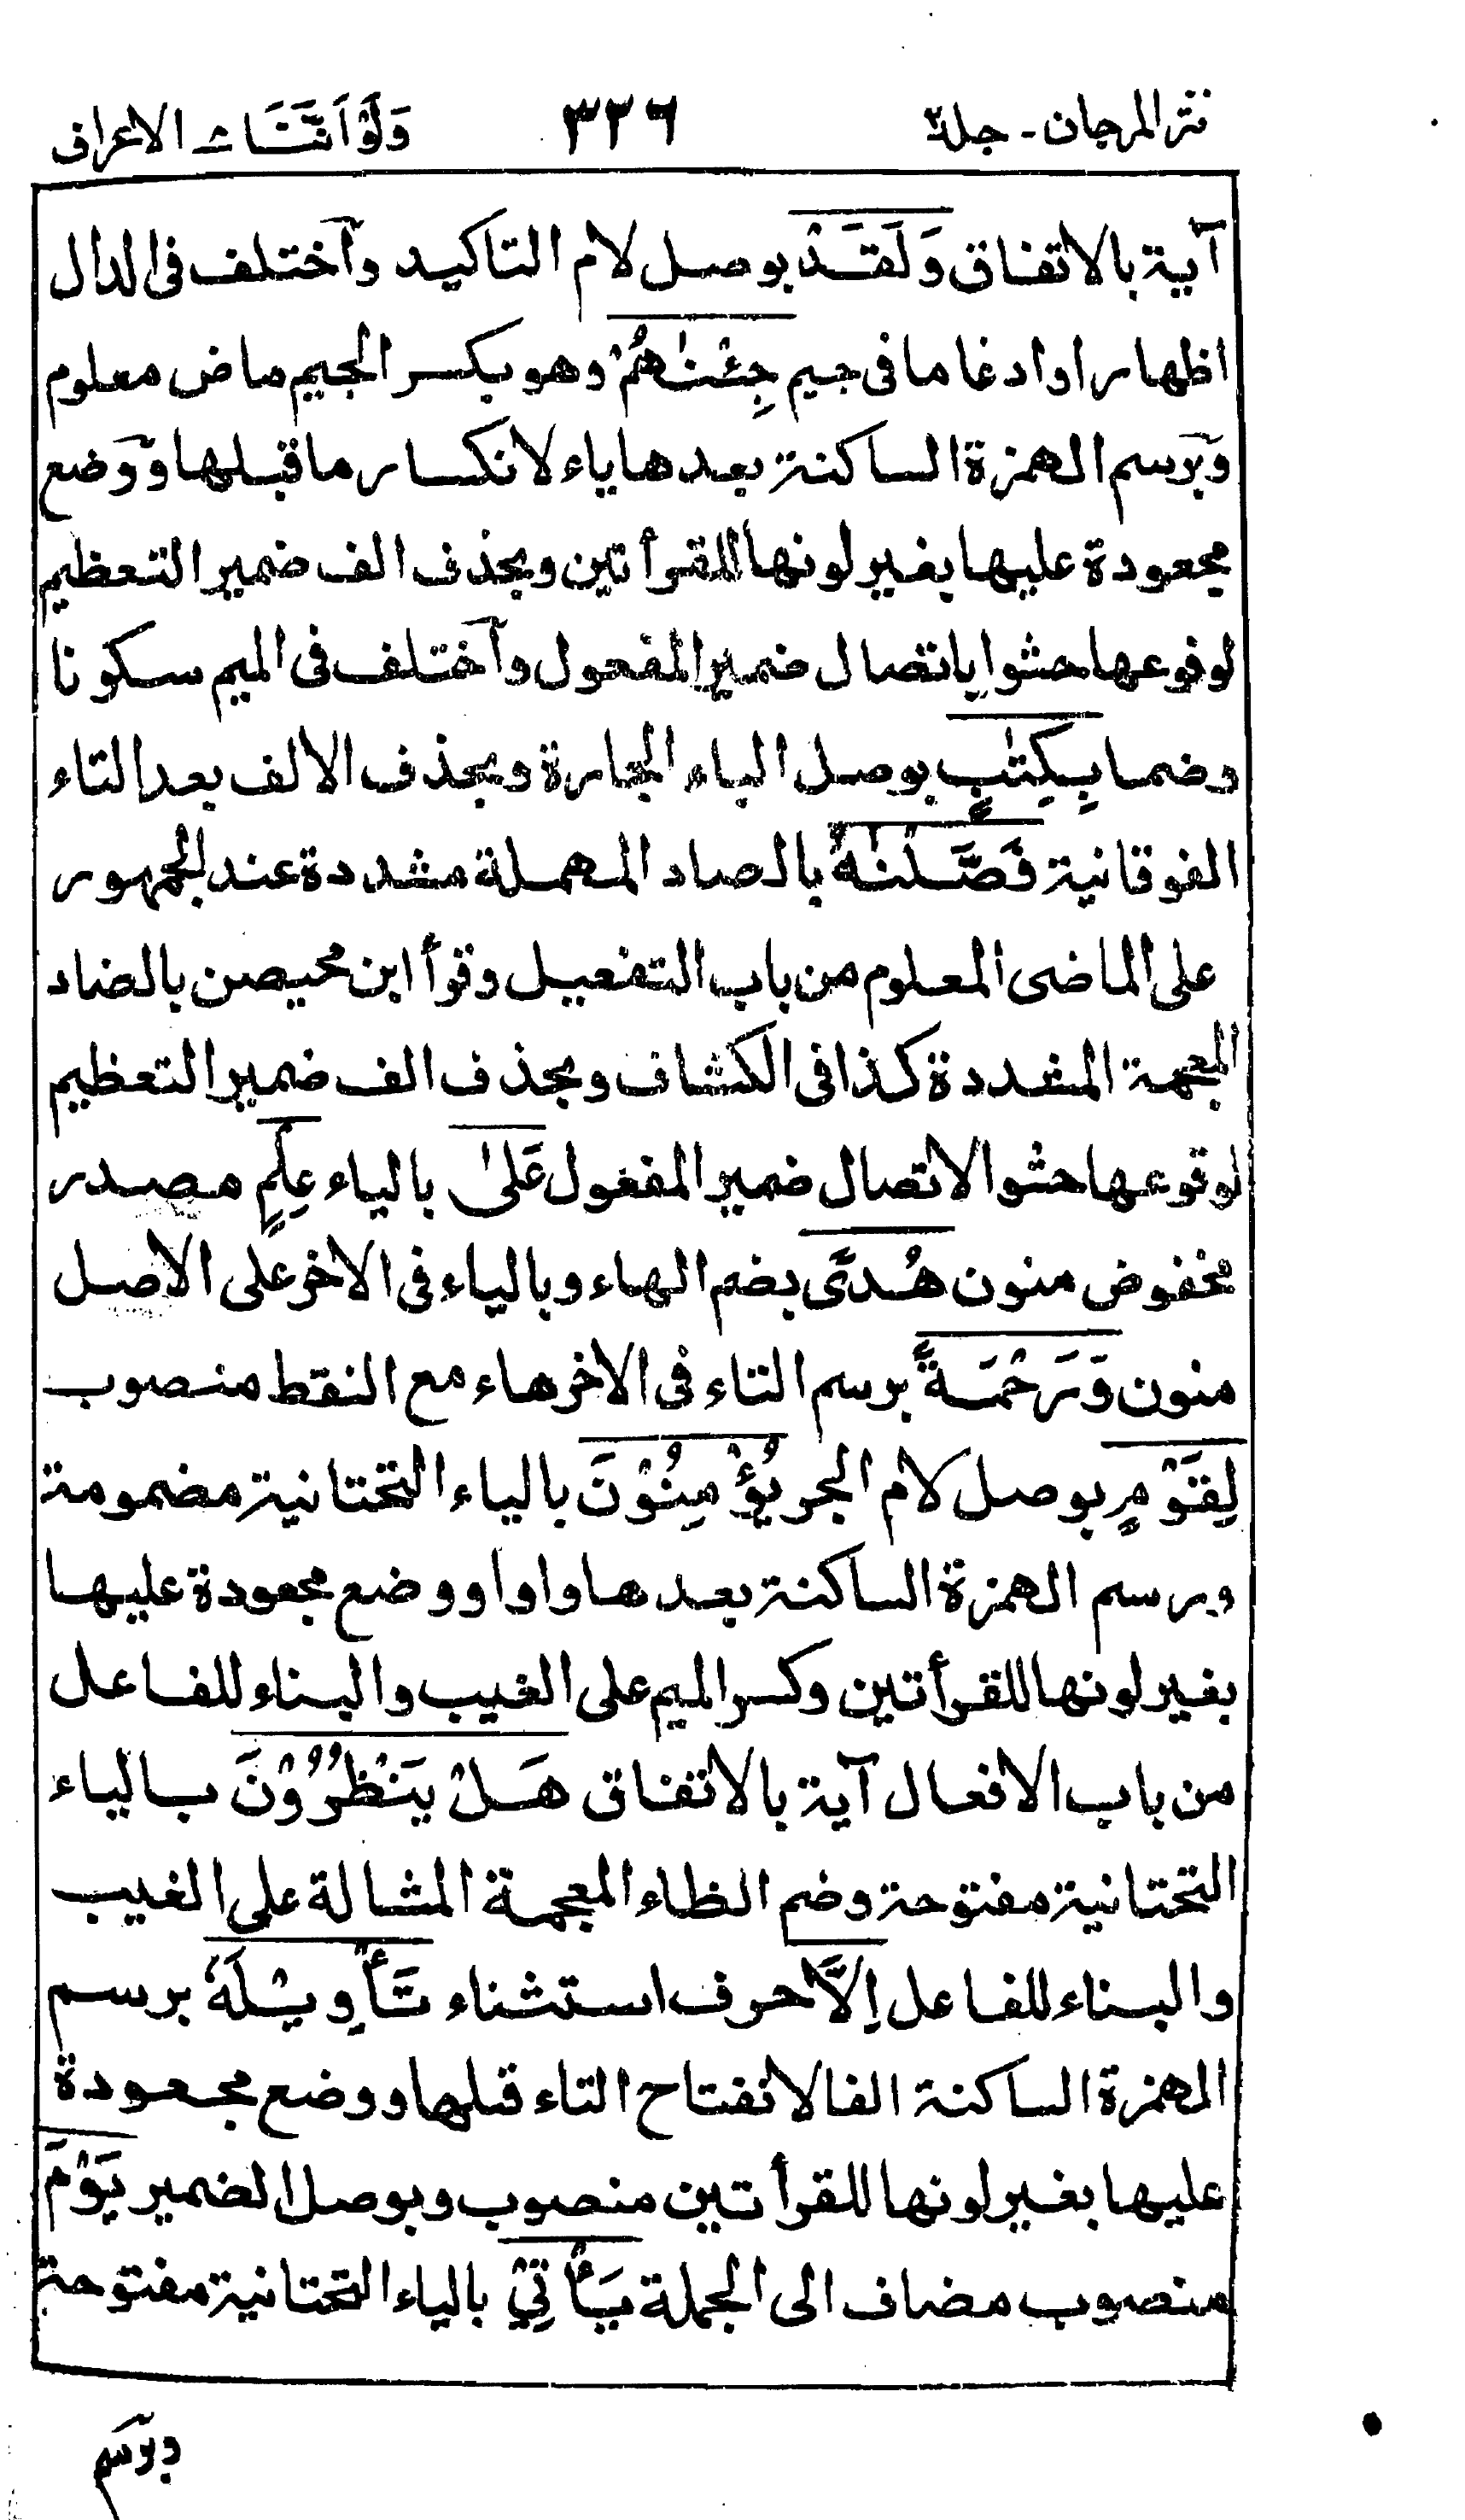 نثر المرجان - جلد ٢
٣٣٦
وَلَوْ اَنَّنَا ٨ الاعراف
آية بالاتفاق وَلَقَدْ بوصل لام التاكيد وآختلف فى الدال
اظهارا وادغاما فى جيم جِئْنٰهُمْ وهو بكسر الجيم ماض معلوم
وبرسم الهمزة الساكنة بعدها ياء لانكسار ما قبلها ووضع
مجعودة عليها بغير لونها للقرأتين وبحذف الف ضمير التعظيم
لوقوعها حشوا باتصال ضمير المفعول وآختلف فى الميم سكونا
وضما بِكِتٰبٍ بوصل الباء الجارة وبحذف الالف بعد التاء
الفوقانية فَصَّلْنٰهُ بالصاد المهملة مشددة عند الجمهور
على الماضى المعلوم من باب التفعيل وقرأ ابن محيصن بالضاد
المعجمة المشددة كذا فى الكشاف وبحذف الف ضمير التعظيم
لوقوعها حشوا لاتصال ضمير المفعول عَلٰى بالياء عِلْمٍ مصدر
مخفوض منون هُدًى بضم الهاء وبالياء فى الاخر على الاصل
منون وَرَحْمَةً برسم التاء فى الاخرهاء مع النقط منصوب
لِقَوْمٍ بوصل لام الجر يُؤْمِنُوْنَ بالياء التحتانية مضمومة
وبرسم الهمزة الساكنة بعدها واوا ووضع مجعودة عليها
بغير لونها للقرأتين وكسر الميم على الغيب والبناء للفاعل
من باب الافعال آية بالاتفاق هَلْ يَنْظُرُوْنَ بالياء
التحتانية مفتوحة وضم الظاء المعجمة المشالة على الغيب
والبناء للفاعل اِلَّا حرف استثناء تَأْوِيْلَهٗ برسم
الهمزة الساكنة الفا لانفتاح التاء قبلها ووضع مجعودة
عليها بغير لونها للقرأتين منصوب وبوصل الضمير يَوْمَ
منصوب مضاف الى الجملة يَأْتِيْ بالياء التحتانية مفتوحة
وبرسم